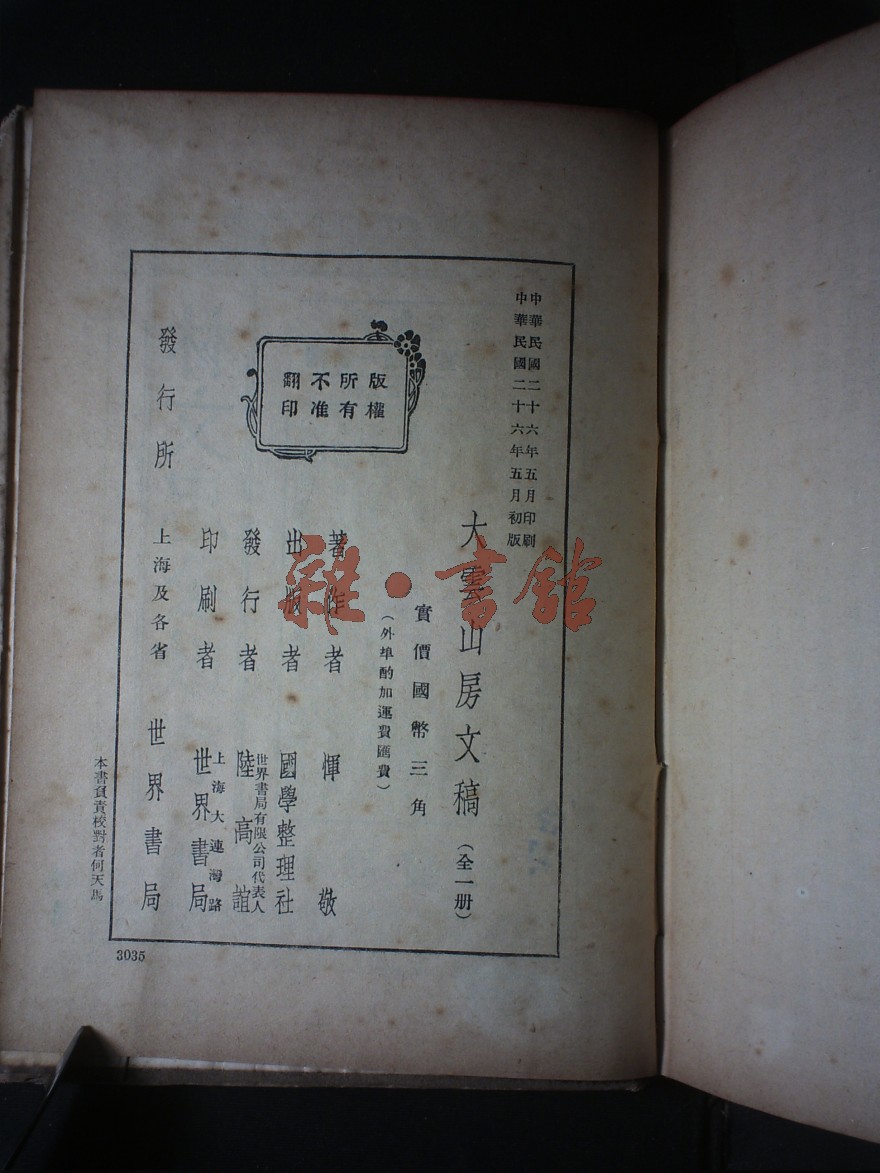 中華民國二十六年五月印刷
中華民國二十六年五月初版
大雲山房文稿(全一册)
實價國幣三角
(外埠酌加運費匯費)
版權
所有
不准
翻印
著作者 惲敬
出版者 國學整理社
發行者 世界書局有限公司代表人 陸高誼
印刷者 上海大連灣路 世界書局
發行所 上海及各省 世界書局
本書負責校對者何天馬
3035
雜·書館